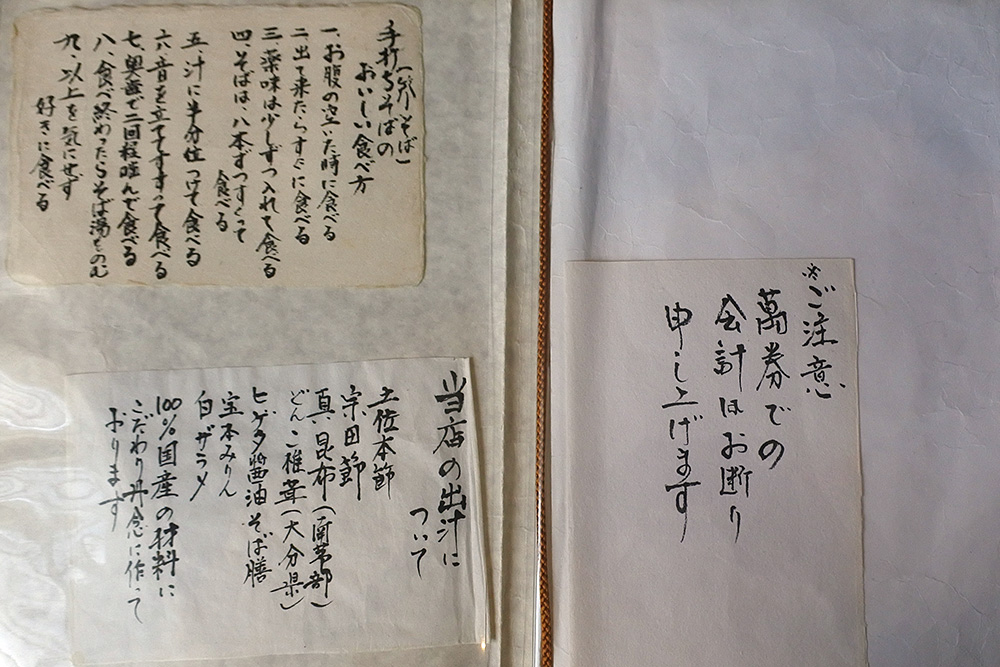 手打ちそばの
(外そば)
おいしい食べ方
一、お腹の空いた時に食べる
二、出て来たらすぐに食べる
三、薬味は少しずつ入れて食べる
四、そばは、八本ずつすくって
食べる
五、汁に半分位つけて食べる
六、音を立ててすすって食べる
七、奥歯で二回程噛んで食べる
八、食べ終わったらそば湯をのむ
九、以上を気にせず
好きに食べる
当店の出汁に
ついて
土佐本節
宗田節
真昆布(南茅部)
どんこ椎茸(大分県)
ヒゲタ醤油そば膳
宝本みりん
白ザラメ
100%国産の材料に
こだわり丹念に作って
おります
※ご注意
萬券での
会計はお断り
申し上げます